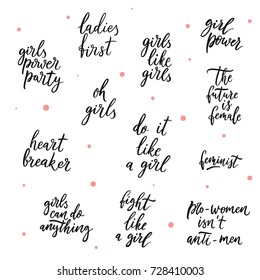 girls
power
party
ladies
first
girls
like
girls
girl
power
oh
girls
the
future
is
female
heart
breaker
do it
like
a girl
feminist
girls
can do
anything
fight
like
a girl
pro-women
isn't
anti-men
shutterstock.com · 728410003